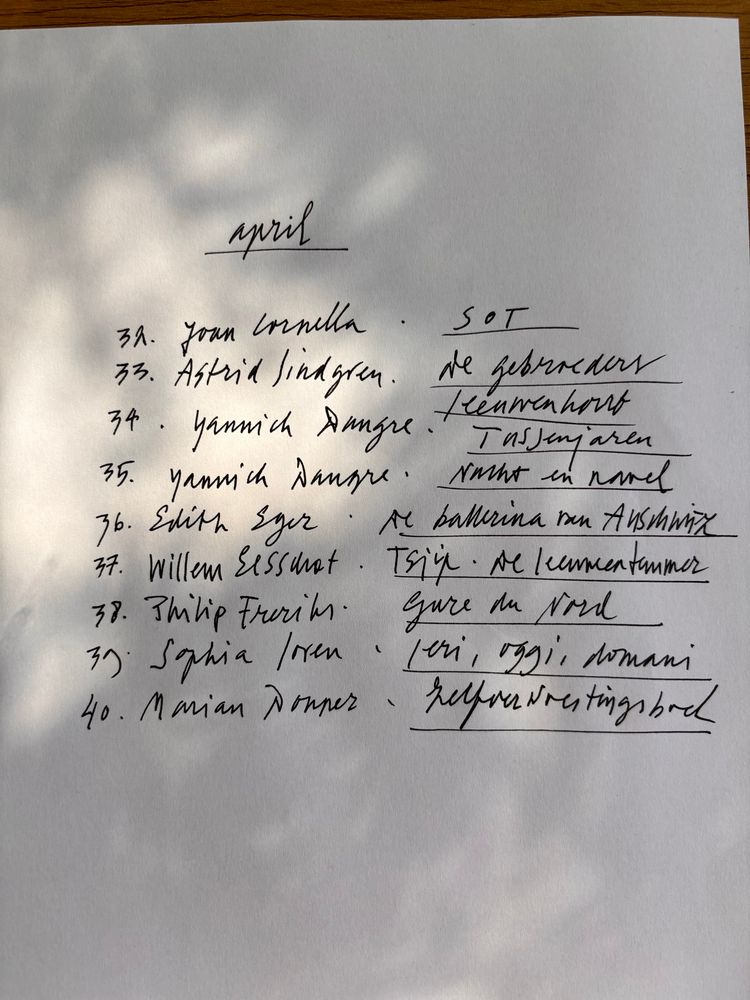 april
32. Joan Cornella . SOT
33. Astrid Lindgren. De gebroeders
Leeuwenhart
34. Yannick Dangre. Tussenjaren
35. Yannick Dangre. Nacht en navel
36. Edith Eger . De ballerina van Auschwitz
37. Willem Elsschot . Tsjip. De leeuwentemmer
38. Philip Freriks. Gare du Nord
39. Sophia Loren . Ieri, oggi, domani
40. Marian Donner . Zelfverwoestingsboek